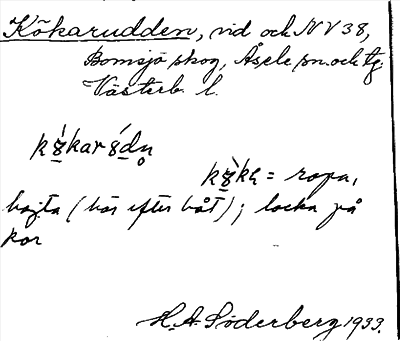 Kökarudden, vid och N V 38,
Bomsjö skog, Åsele sn. och tg.
Västerb. l.
kö̀kar ö́dn̥
kö̀kɐ = ropa,
hojta (här efter båt); locka på
kor
H. A. Söderberg 1933.